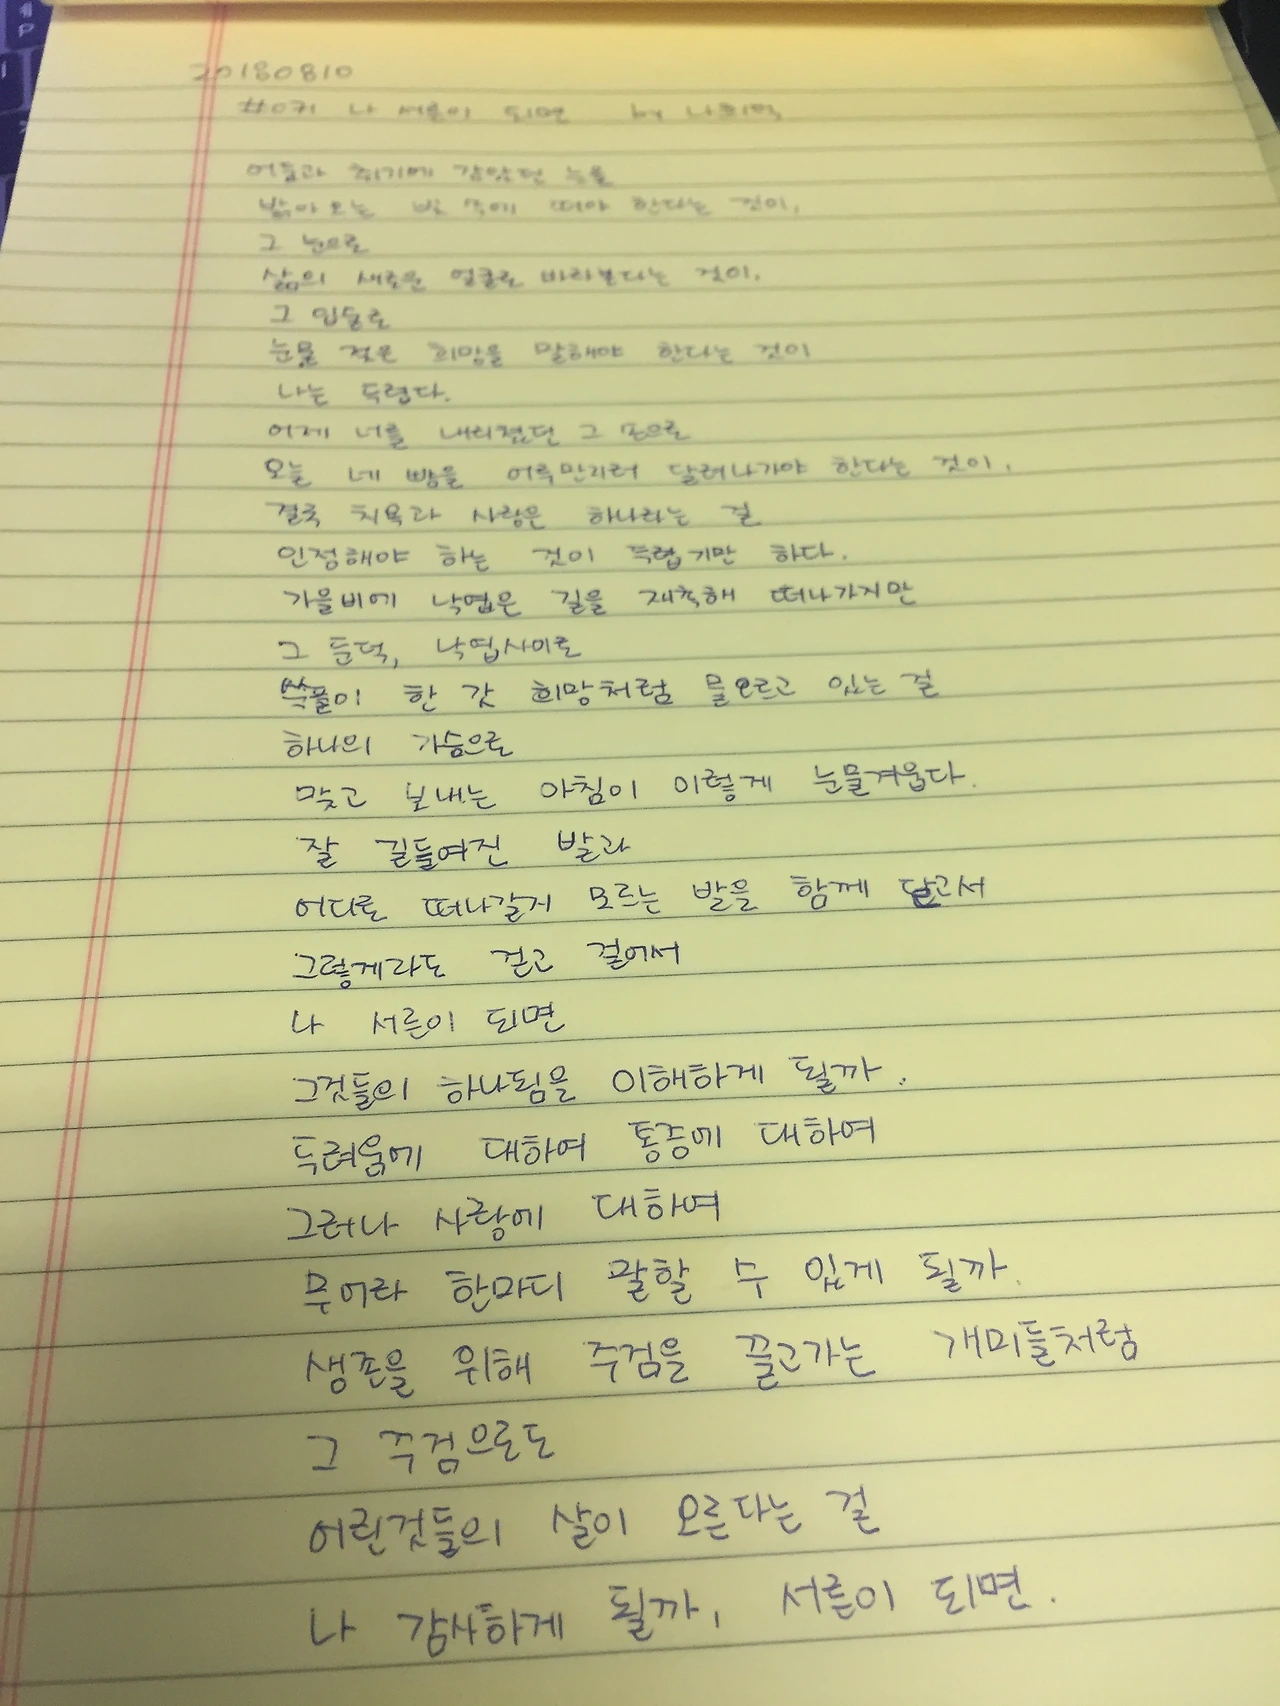 20180810
#071 나 서른이 되면 by 나희덕
어둠과 취기에 감았던 눈을
밝아오는 빛 속에 떠야 한다는 것이,
그 눈으로
삶의 새로운 얼굴을 바라본다는 것이,
그 입술로
눈물 젖은 희망을 말해야 한다는 것이
나는 두렵다.
어제 너를 내리쳤던 그 손으로
오늘 네 뺨을 어루만지러 달려나가야 한다는 것이,
결국 치욕과 사랑은 하나라는 걸
인정해야 하는 것이 두렵기만 하다.
가을비에 낙엽은 길을 재촉해 떠나가지만
그 둔덕, 낙엽사이로
쑥풀이 한 갓 희망처럼 물오르고 있는 걸
하나의 가슴으로
맞고 보내는 아침이 이렇게 눈물겨웁다.
잘 길들여진 발과
어디로 떠나갈지 모르는 발을 함께 달고서
그렇게라도 걷고 걸어서
나 서른이 되면
그것들의 하나됨을 이해하게 될까.
두려움에 대하여 통증에 대하여
그러나 사랑에 대하여
무어라 한마디 말할 수 있게 될까.
생존을 위해 주검을 끌고가는 개미들처럼
그 주검으로도
어린것들의 살이 오른다는 걸
나 감사하게 될까, 서른이 되면.